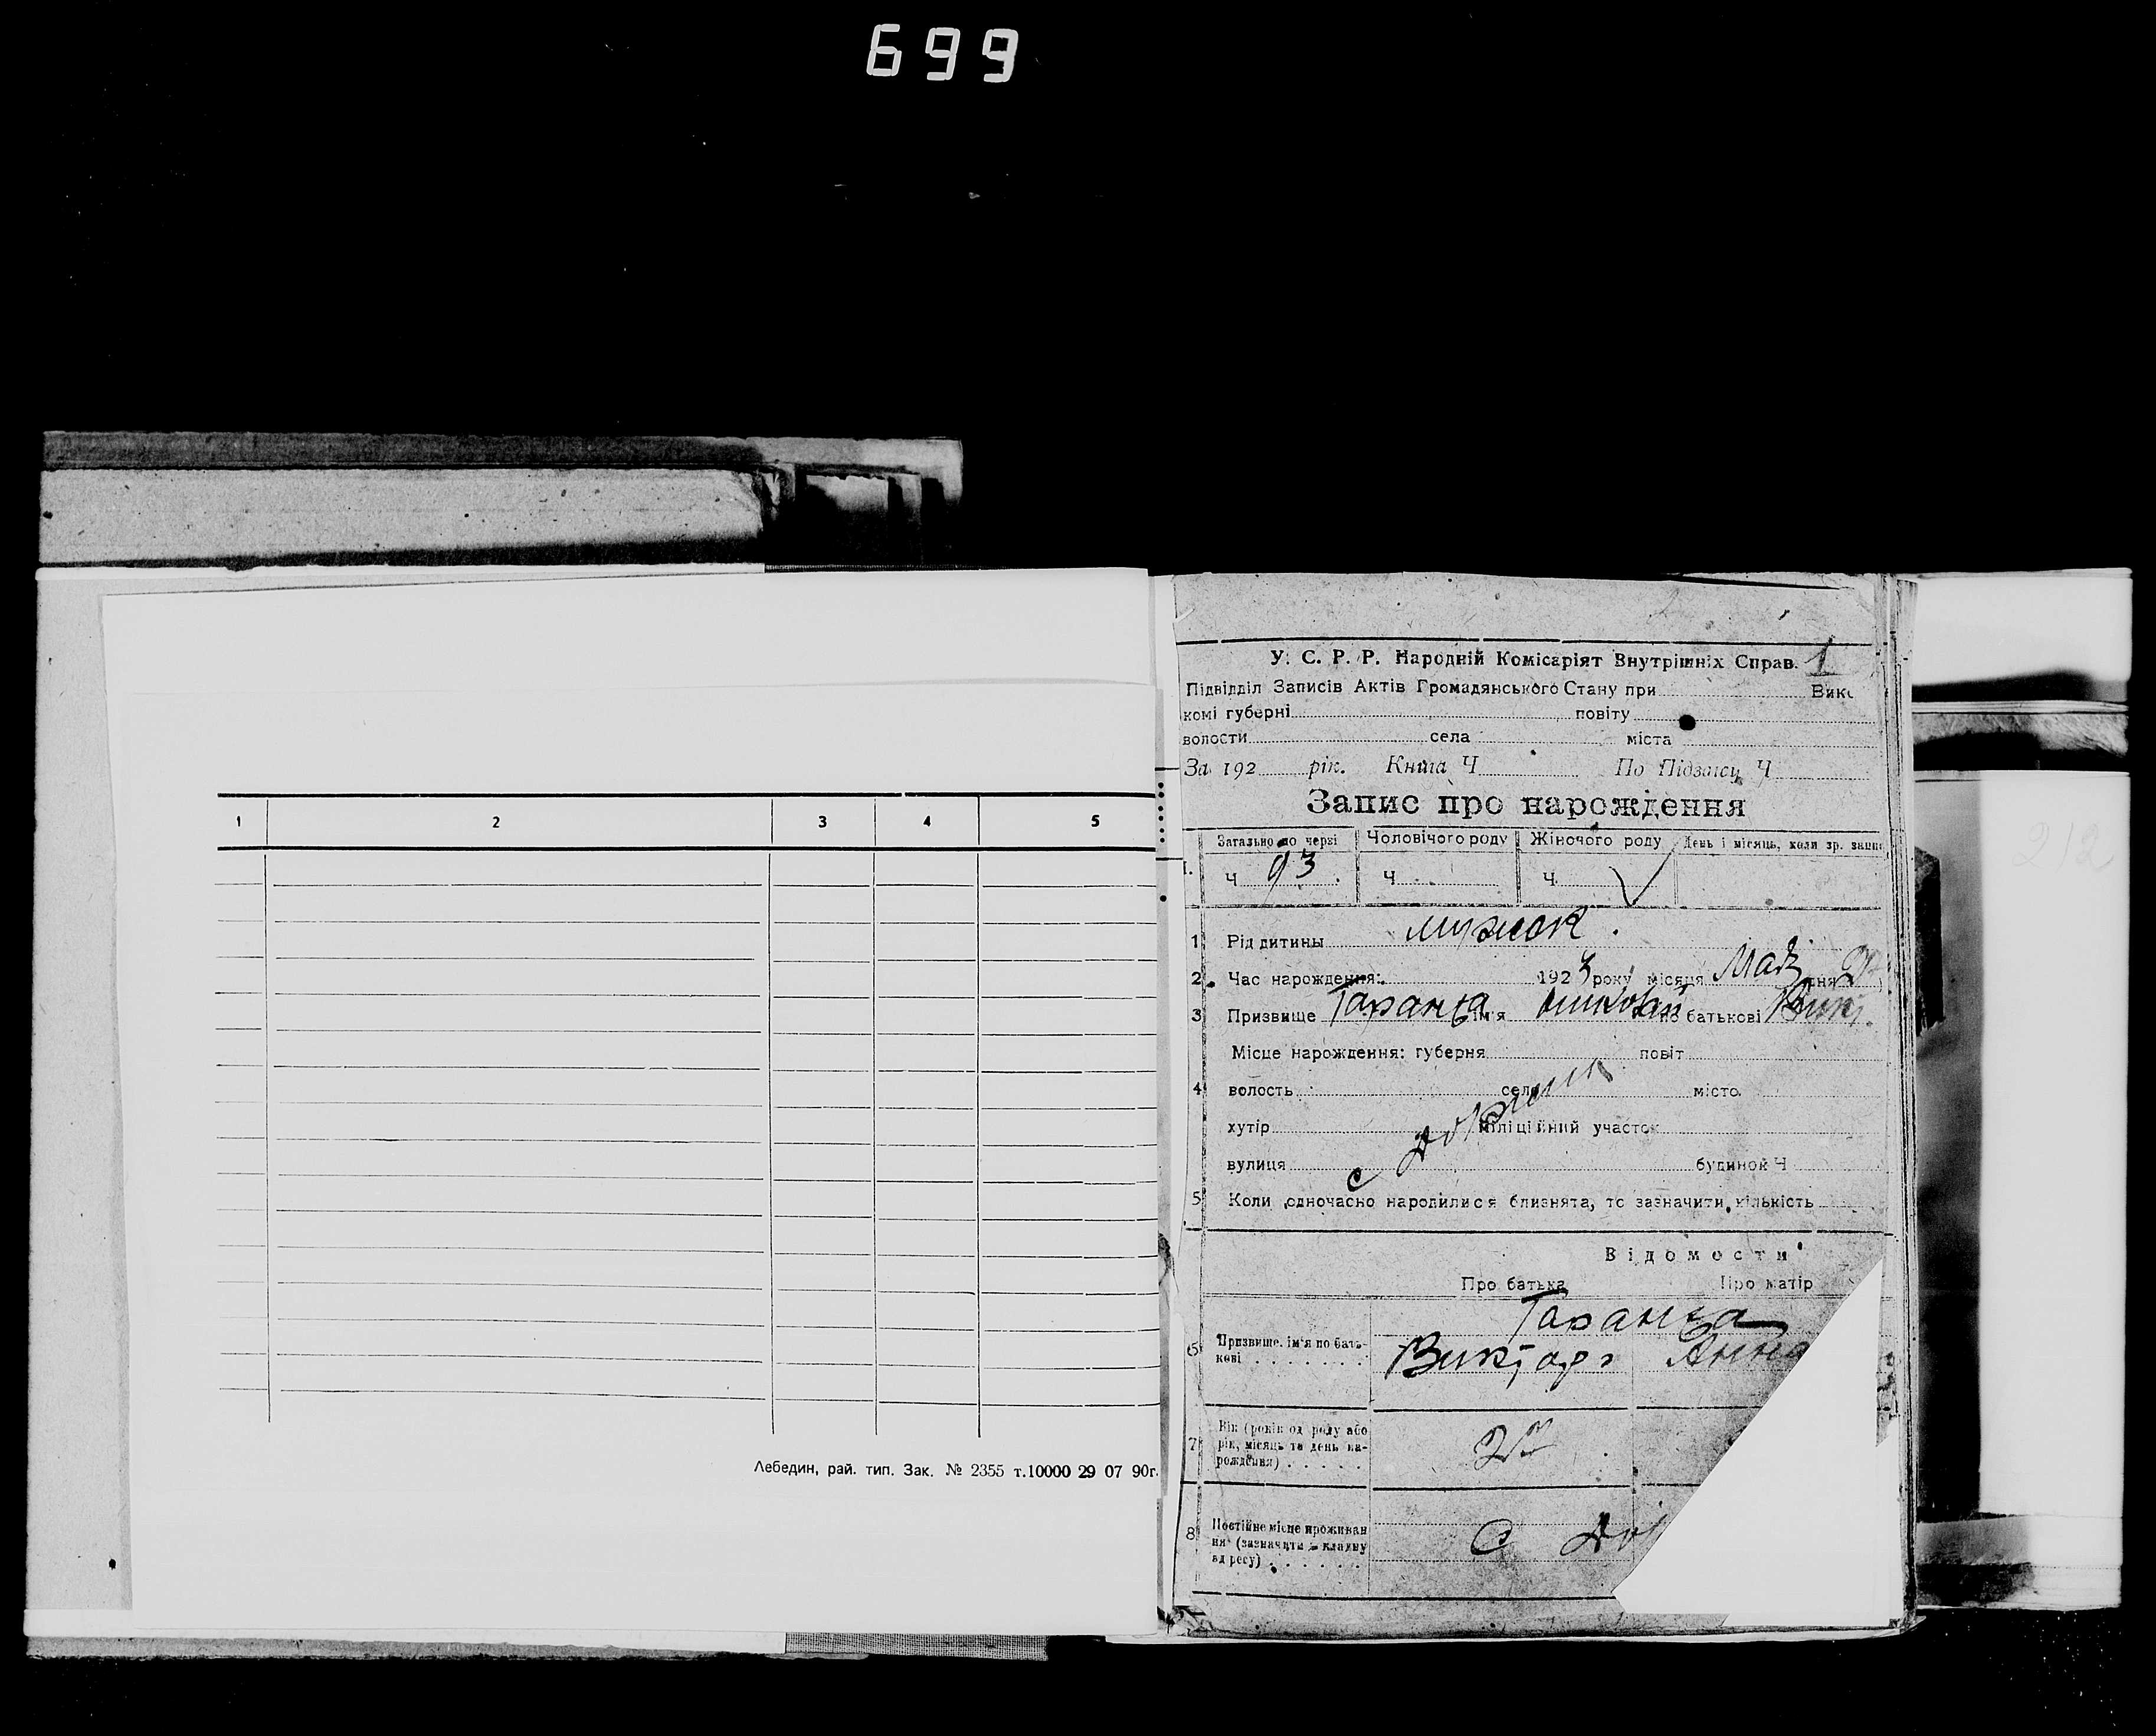 699
1 2 3 4 5
Лебедин, рай. тип. Зак. № 2355 т.10000 29 07 90г.
212
У. С. Р. Р. Народній Комісаріят Внутрішніх Справ. 1
Підвідділ Записів Актів Громадянського Стану при Вико
комі губерні повіту
волости села міста
За 192 рік. Книга Ч По Підзапису Ч
Запис про нарождення
Загально по черзі Чоловічого роду Жіночого роду День і місяць, коли зр. запис
1. Ч 93 Ч Ч
1 Рід дитины мужск
2. Час нарождення: 1923 року місяця Май дня
3 Призвище Таранга ім'я Николай по батькові Викт.
Місце нарождення: губерня повіт
4 волость село місто
хутір міліційний участок
вулиця с будинок Ч
5 Коли одночасно народилися близнята, то зазначити кількість
Відомости
Про батька Про матір
Таранга
6 Призвище, ім'я по батькові Викторъ Анна
7 Вік (років од роду або рік, місяць та день нарождення)
8 Постійне місце проживання (зазначити докладну адресу) С